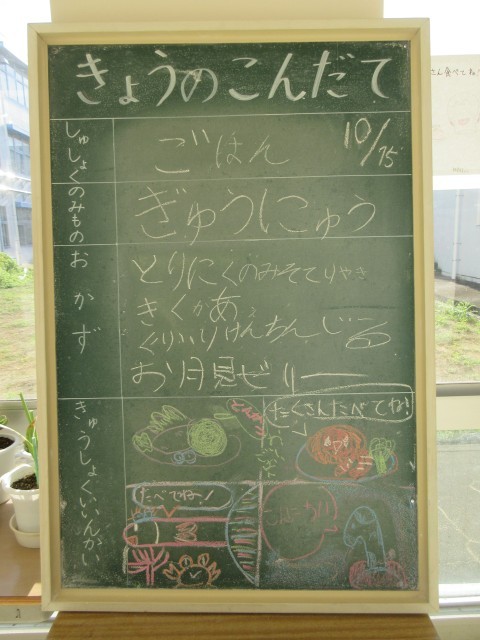 きょうのこんだて
10/15
しゅしょく
ごはん
のみもの
ぎゅうにゅう
おかず
とりにくのみそてりやき
きくかあえ
くりいりけんちんじる
お月見ゼリー
きゅうしょくいいんかい
たくさんたべてね!
たべてね!
さん食べてね!